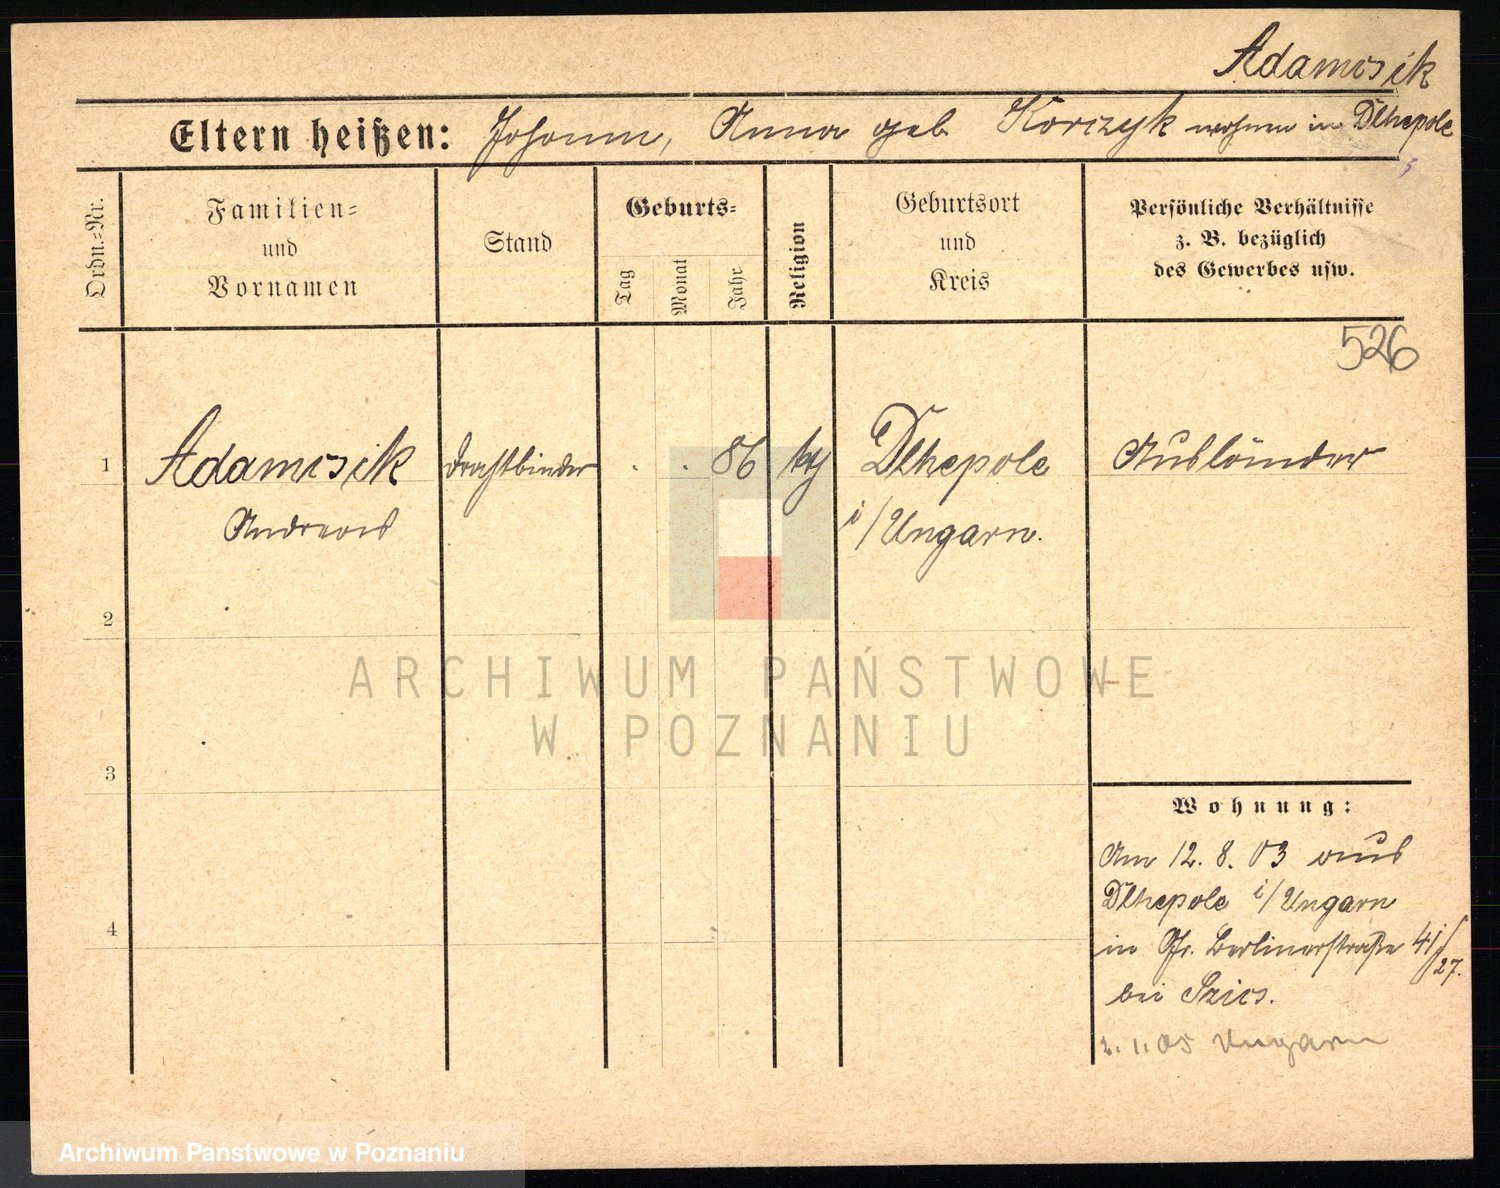 Adamcsik
Eltern heißen: Johann, Anna geb. Korczyk wohnen in Dlhepole
Ordn.-Nr.
Familien-
und
Vornamen
Stand
Geburts-
Tag
Monat
Jahr
Religion
Geburtsort
und
Kreis
Persönliche Verhältnisse
z. B. bezüglich
des Gewerbes usw.
526
1 Adamcsik Drahtbinder . . 86 Dlhepole Ausländer
Andreas i/Ungarn.
2
3
4
Wohnung:
Am 12. 8. 03 aus
Dlhepole i/Ungarn
in Gr. Berlinerstraße 41/27.
bei
2. 1. 05 Ungarn
ARCHIWUM PAŃSTWOWE
W POZNANIU
Archiwum Państwowe w Poznaniu